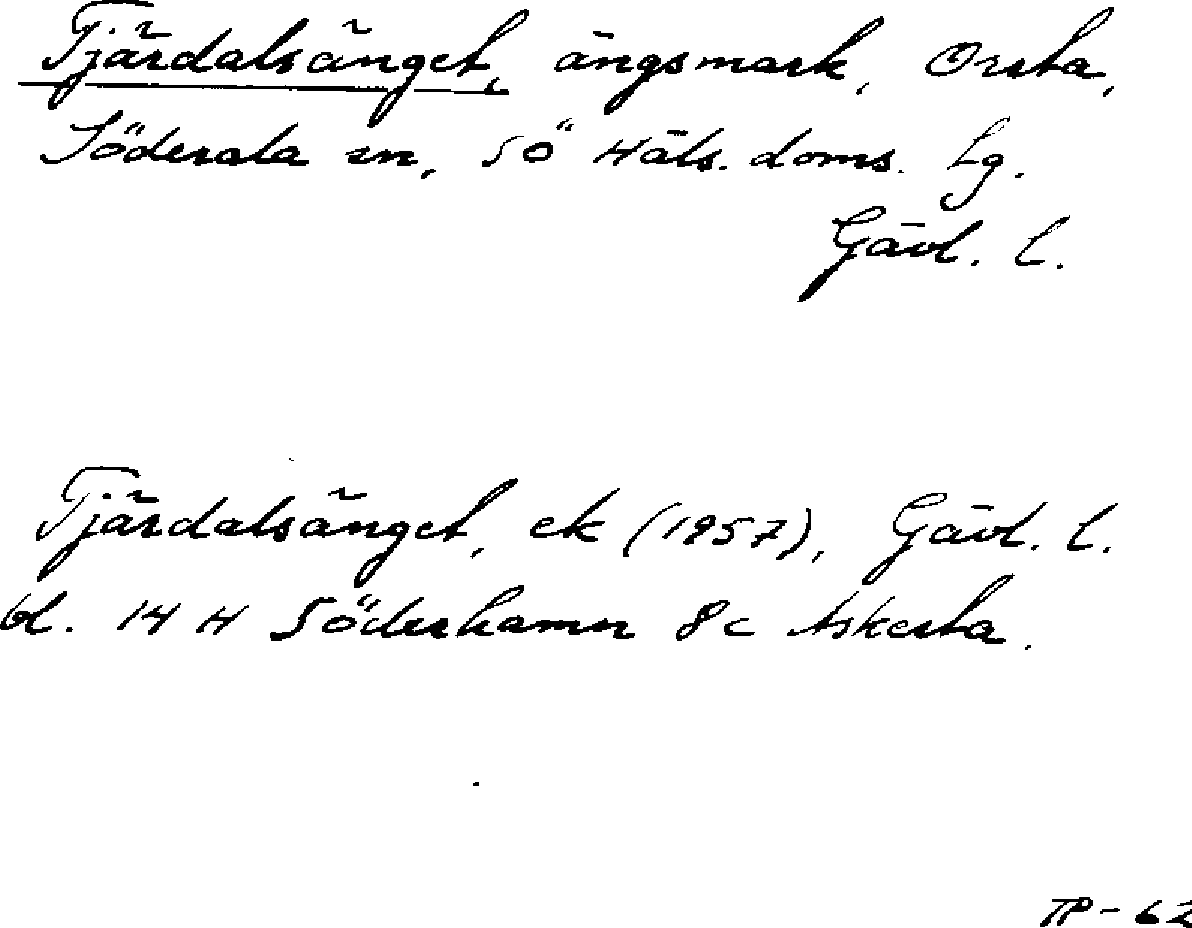 Tjärdalsänget, ängsmark, Orsta,
Söderala sn, SÖ Häls. doms. Lg.
Gävl. l.
Tjärdalsänget, ek (1957), Gävl. l.
bl. 14 H Söderhamn 8c Askesta.
TP-62